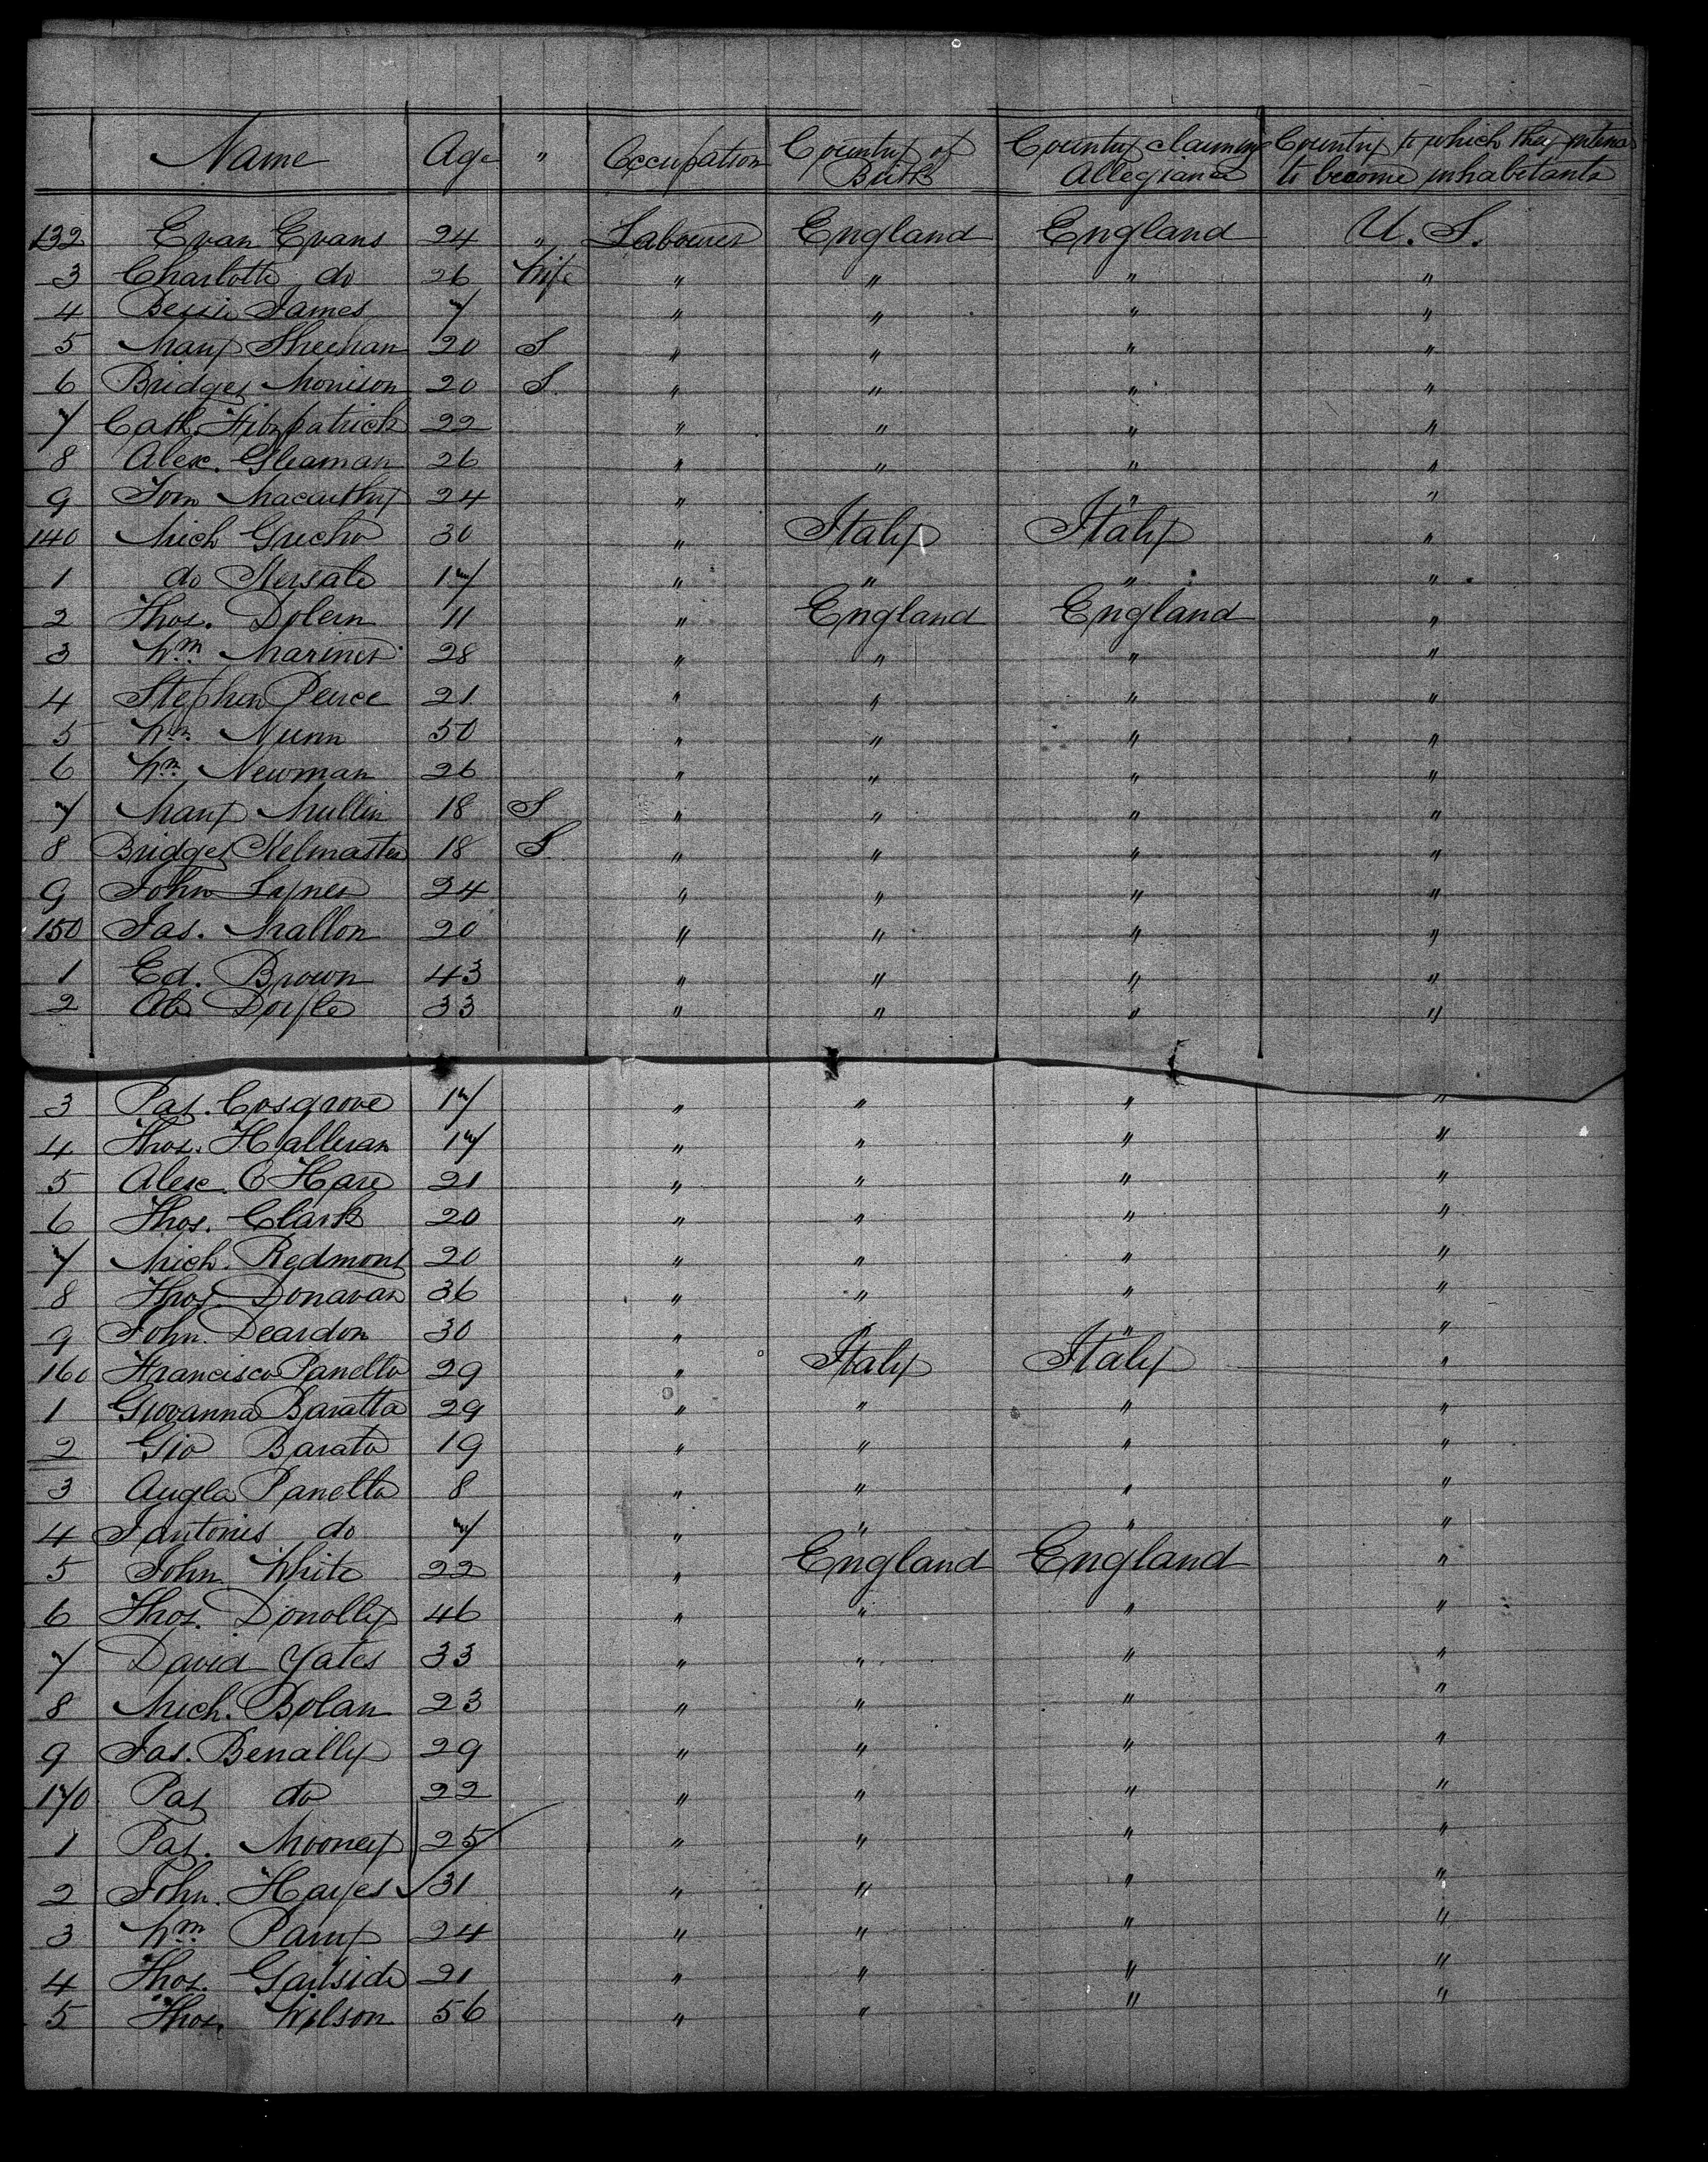 Name Age " Occupation Country of Birth Country claiming Allegiance Country to which they intend to become inhabitants
132 Evan Evans 24 " Labourer England England U. S.
3 Charlotte do 26 Wife " " " "
4 Bessie James 7 " " " "
5 Mary Sheehan 20 S " " " "
6 Bridget Morrison 20 S " " " "
7 Cath. Fitzpatrick 22 " " " "
8 Alex. Gleaman 26 " " " "
9 Tom Macarthy 24 " " "
140 Mich 30 " Italy Italy "
1 do 17 " " " "
2 Thos. Dolern 11 " England England "
3 Wm Mariner 28 " " " "
4 Stephen Peirce 21 " " " "
5 Wm Nunn 50 " " " "
6 Wm Newman 26 " " " "
7 Mary Mullin 18 S " " " "
8 Bridget Kelmaster 18 S " " " "
9 John Lynes 24 " " " "
150 Jas. Mallon 20 " " " "
1 Ed. Brown 43 " " " "
2 Ab Doyle 33 " " " "
3 Pat. Cosgrove 17 " " " "
4 Thos. Halleran 17 " " " "
5 Alex. O Hare 21 " " " "
6 Thos. Clark 20 " " " "
7 Mich. Redmont 20 " " " "
8 Thos. Donavan 36 " " " "
9 John Deardon 30 " " " "
160 Francisco Panetta 29 " Italy Italy "
1 Giovanna Baratta 29 " " " "
2 Gio Barato 19 " " " "
3 Augla Panetta 8 " " " "
4 do 7 " " " "
5 John White 22 " England England "
6 Thos. Donolly 46 " " " "
7 David Yates 33 " " " "
8 Mich. Bolan 23 " " " "
9 Jas. Benally 29 " " " "
170 Pat do 22 " " " "
1 Pat. Mooney 25 " " " "
2 John Hayes 31 " " " "
3 Wm Parry 24 " " " "
4 Thos. Gartside 21 " " " "
5 Thos. Wilson 56 " " " "